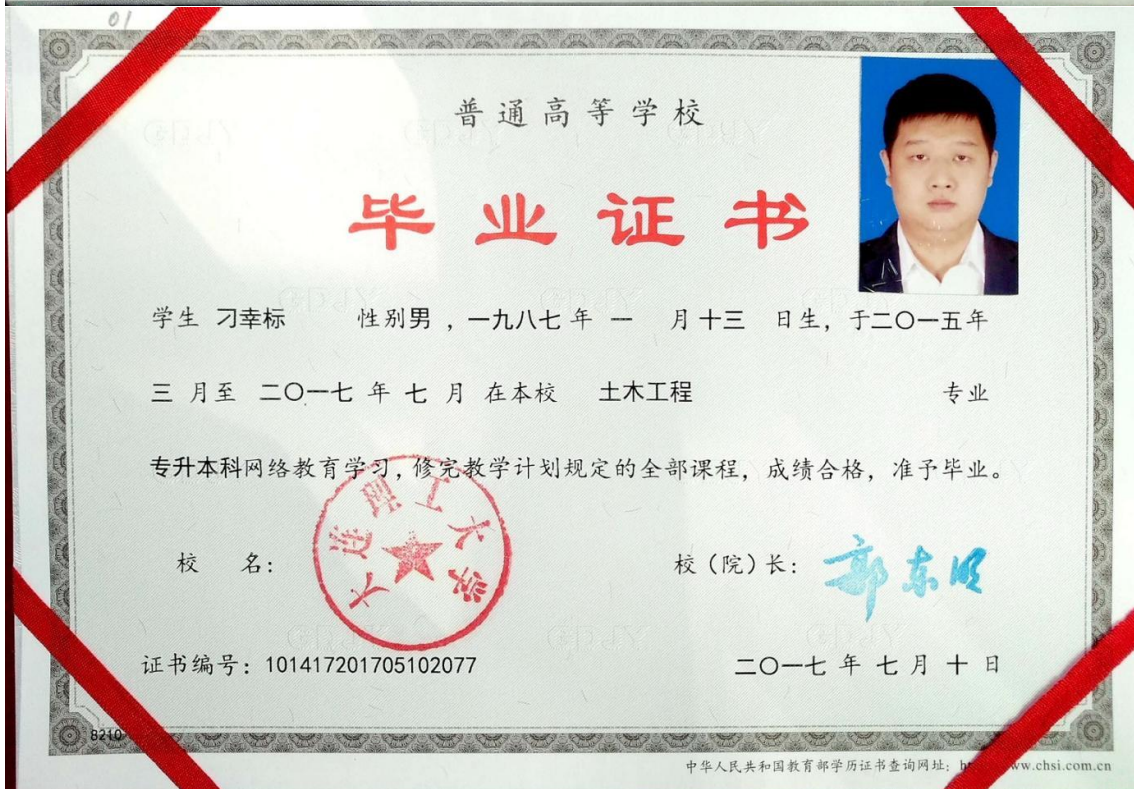 01
普通高等学校
毕业证书
学生 刁幸标 性别男，一九八七年 一 月十三 日生，于二〇一五年
三 月至 二〇一七 年 七 月 在本校 土木工程 专业
专升本科网络教育学习，修完教学计划规定的全部课程，成绩合格，准予毕业。
大连理工大学
校 名： 校（院）长： 郭东明
证书编号：101417201705102077 二〇一七 年 七 月 十 日
8210
中华人民共和国教育部学历证书查询网址： ww.chsi.com.cn